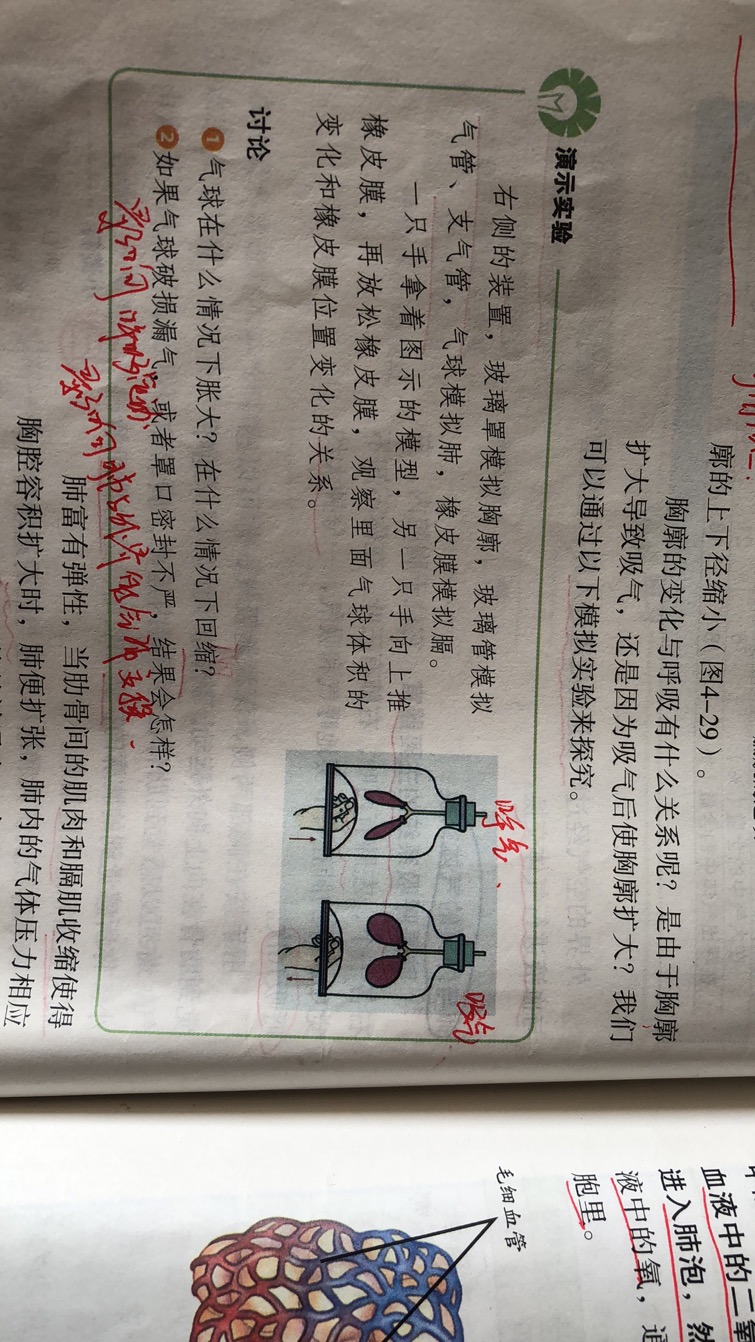 廓的上下径缩小（图4-29）。
胸廓的变化与呼吸有什么关系呢？是由于胸廓
扩大导致吸气，还是因为吸气后使胸廓扩大？我们
可以通过以下模拟实验来探究。
演示实验
右侧的装置，玻璃罩模拟胸廓，玻璃管模拟
气管、支气管，气球模拟肺，橡皮膜模拟膈。
一只手拿着图示的模型，另一只手向上推
橡皮膜，再放松橡皮膜，观察里面气球体积的
变化和橡皮膜位置变化的关系。
呼气、
吸气
讨论
1 气球在什么情况下胀大？在什么情况下回缩？
2 如果气球破损漏气，或者罩口密封不严，结果会怎样？
肺富有弹性，当肋骨间的肌肉和膈肌收缩使得
胸腔容积扩大时，肺便扩张，肺内的气体压力相应
血液中的二氧
进入肺泡，然
液中的氧，通
胞里。
毛细血管